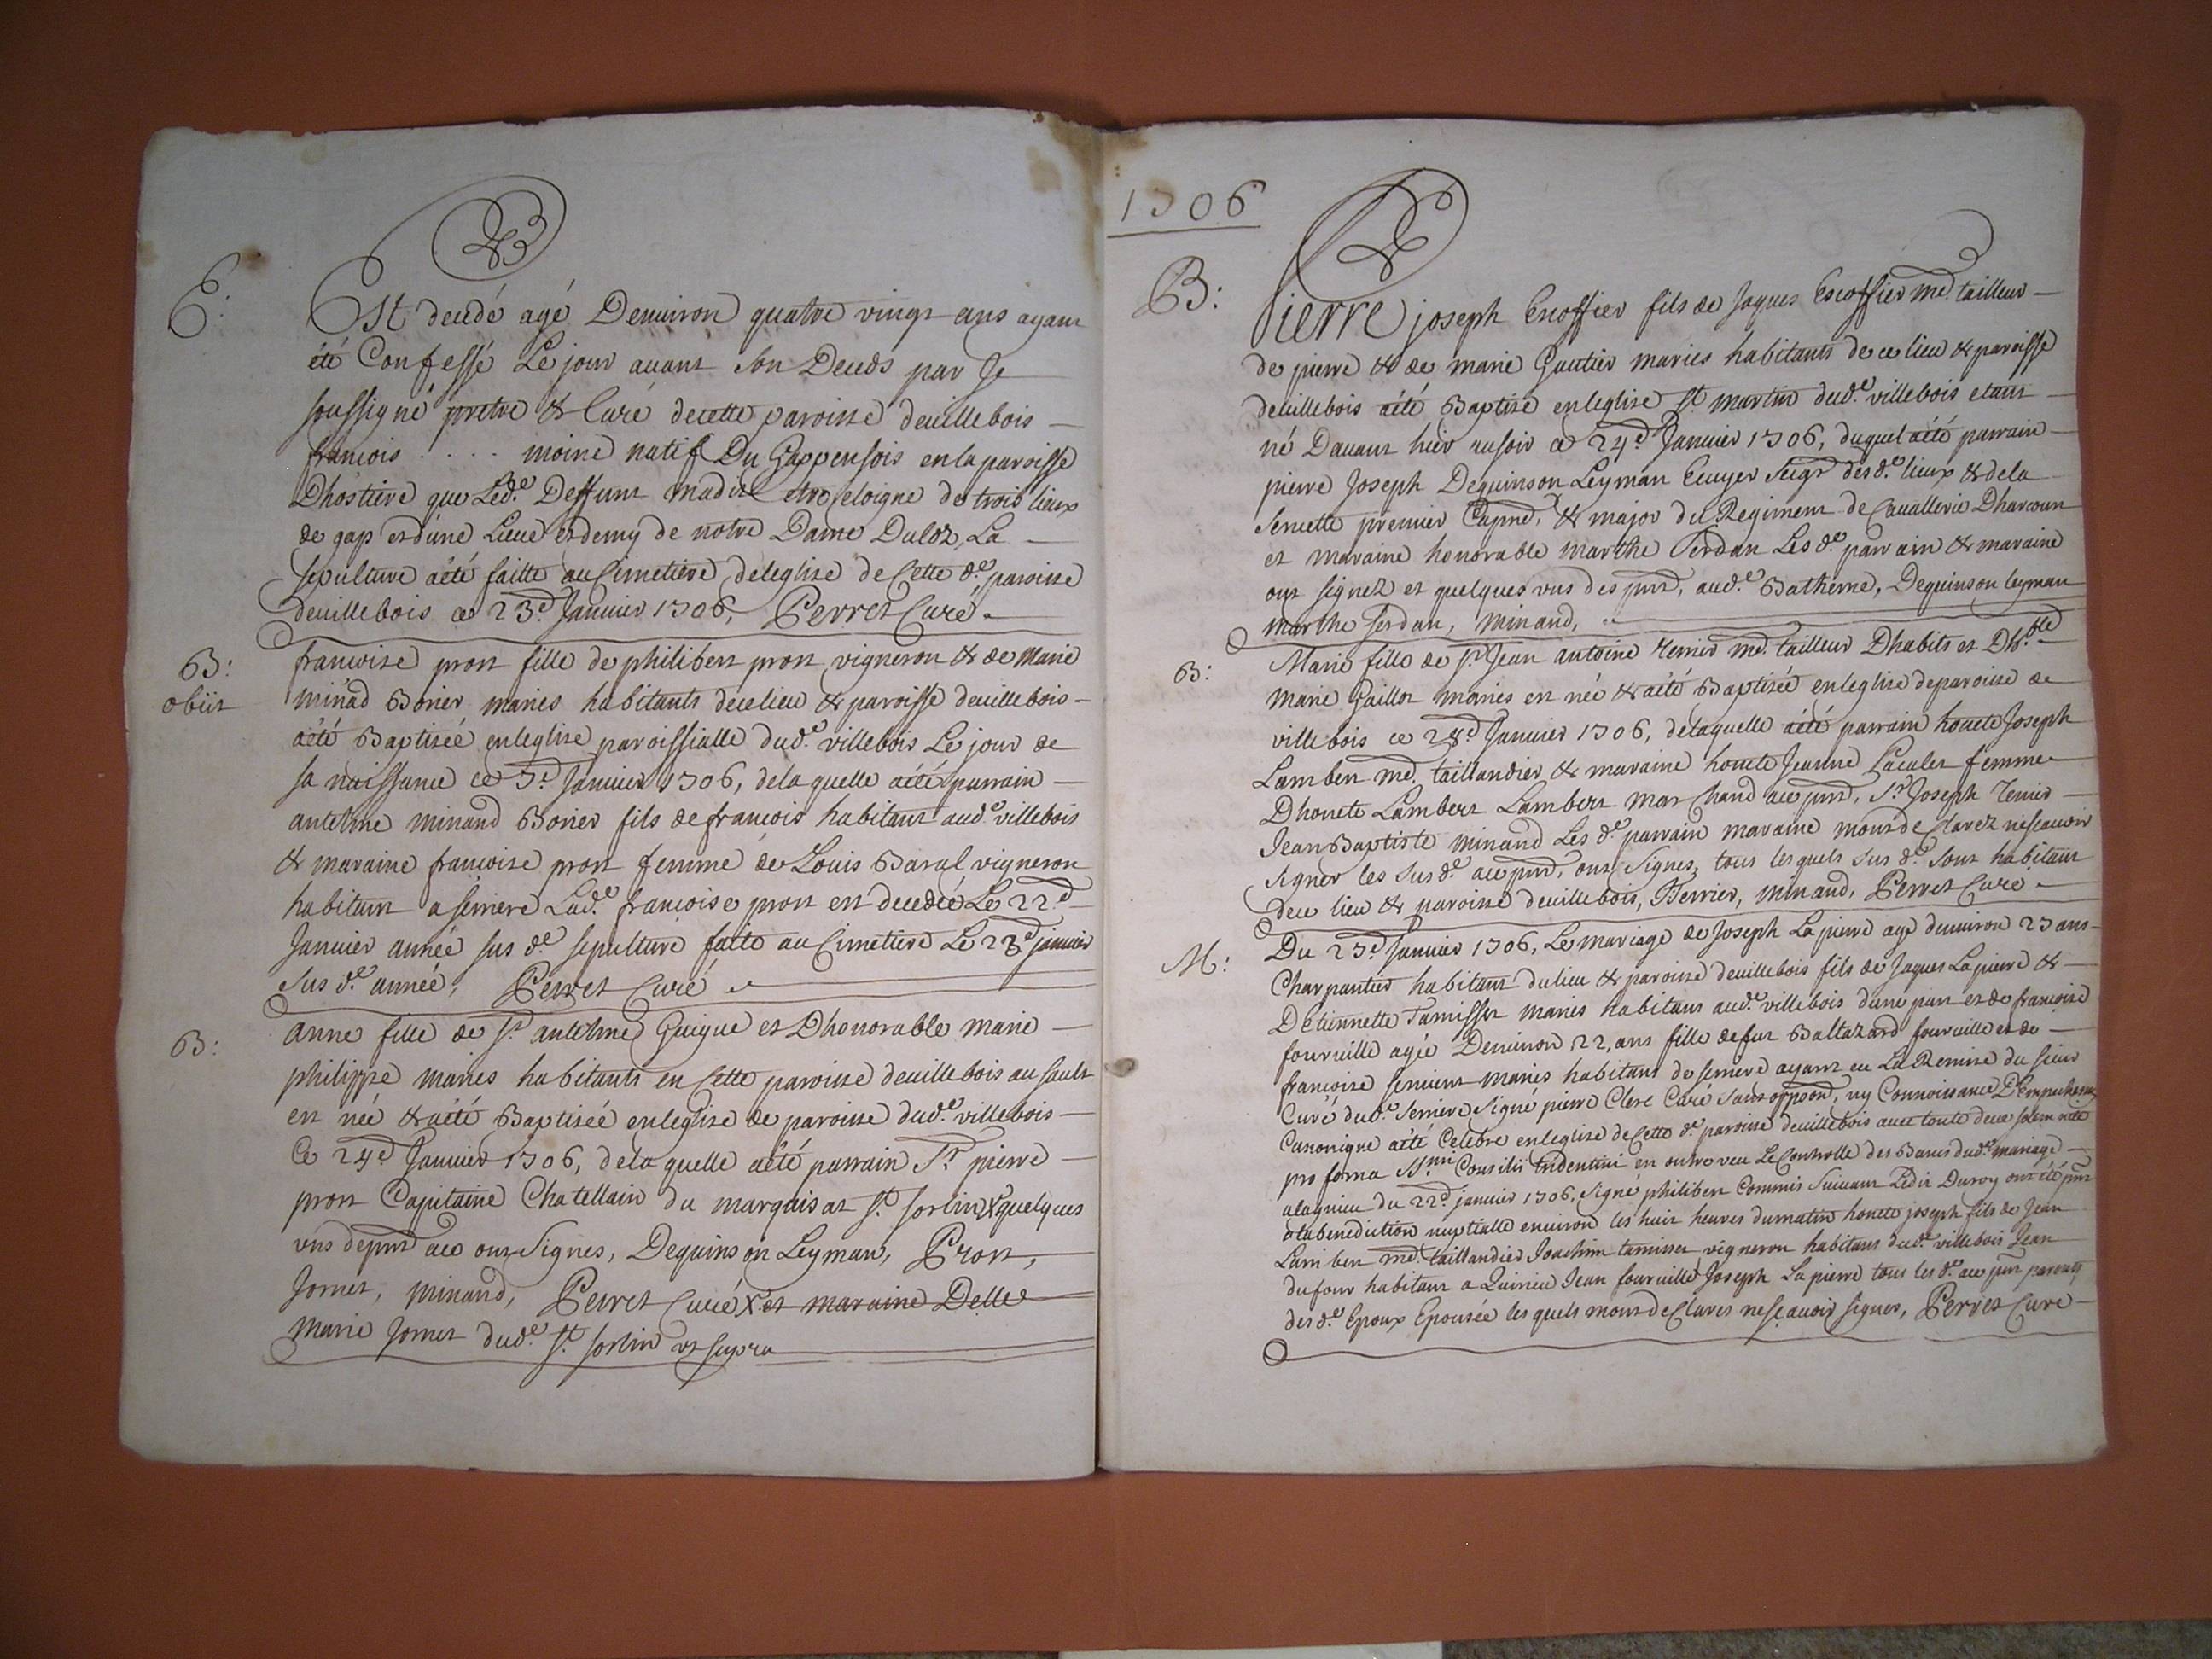 E:
Est decedé agé Denuiron quatre vingt ans ayant
été Confessé Le jour auant Son Deceds par Je
soussigné pretre & Curé decette paroisse deuillebois
francois . . . . moine natif Du Gappensois enla paroisse
Dhostiere que Led.e Deffunt madit etre eloigne de trois lieux
de gap et dune Lieue et demy de notre Dame Duloz, La
sepulture aété faitte au Cimetiere deleglise de Cette d.e paroisse
deuillebois ce 23.e Januier 1706, Perret Curé
B:
obiit
francoise pron fille de philibert pron vigneron & de Marie
minad Borier maries habitants decelieu & paroisse deuillebois
aété Baptisée enleglise paroissialle dud.e villebois Le jour de
sa naissance ce 7.e Januier 1706, dela quelle aété parrain
antelme minand Borier fils defrancois habitant aud.e villebois
& maraine francoise pron femme de Louis Baral vigneron
habitant a serriere Lad.e francoise pron est decedée Le 22.e
Januier année sus d.e sepulture faite au Cimetiere Le 23.e januier
sus d.e année, Perret Curé
B:
anne fille de S.r antelme Guigue et Dhonorable marie
philippe maries habitants en Cette paroisse deuillebois au sault
est née & aété Baptisée enleglise de paroisse dud.e villebois
Ce 24.e Januier 1706, dela quelle aété parrain S.r pierre
pron Capitaine Chatellain du marquisat S.t sorlin X quelques
vns depnt ace ont Signes, Dequinson Leyman, Pron,
Jornet, minand, Perret Curé X et maraine Delle
marie Jornet dud.e S.t sorlin vt supra
1706
B:
Pierre joseph Escoffier fils de Jaques Escoffier md. tailleur
de pierre & de marie Gautier maries habitants dece lieu & paroisse
deuillebois aété Baptisé enleglise S.t martin dud.e villebois etant
né Dauant hier ausoir ce 24.e Januier 1706, duquel aété parrain
pierre Joseph Dequinson Leyman Ecuyer Seigr des d.e lieux & dela
Seruette premier Capne. & major du Regiment de Cauallerie Dharcour
et maraine honorable marthe Serdan Les d.e parrain & maraine
ont signez et quelques vns des pnt, aud.e Batheme, Dequinson leyman
marthe serdan, minand,
B:
Marie fille de S.r Jean antoine Terrier md. tailleur Dhabits et Dh.ble
Marie Gaillot maries est née & aété Baptisée enleglise deparoisse de
villebois ce 28.e Januier 1706, delaquelle aété parrain honete Joseph
Lambert md. taillandier & maraine honete Jeanne Laculer femme
Dhonete Lambert Lambert marchand ace pnt, S.r Joseph Terrier
Jean Baptiste minand Les d.e parrain maraine mont declarez nescauoir
signer les sus d.e ace pnt, ont Signes, tous lesquels sus d.e sont habitant
dece lieu & paroisse deuillebois, Terrier, minand, Perret Curé
M:
Du 23.e Januier 1706, Le mariage de Joseph Lapierre agé denuiron 23 ans
Charpantier habitant dulieu & paroisse deuillebois fils de Jaques Lapierre &
Detiennette Tamisser maries habitant aud.e villebois dune part et de francoise
fouruille agée Denuiron 22, ans fille defut Baltazard fouruille et de
francoise maries habitant de serriere ayant eu La Remise du sieur
Curé dud.e serriere Signé pierre Clerc Curé sans oppoon, ny Connoissance D Empechement
Canonique aété Celebré enleglise de Cette d.e paroisse deuillebois auec toute deue solemnité
pro forma S.mi Consilii tridentini en outre veu Le Controlle des Bancs dud.e mariage
alagnieu du 22.e januier 1706, Signé philibert Commis Suiuant Ledit Duroy ont été pnt
alabenediction nuptialle enuiron les huit heures dumatin honete joseph fils de Jean
Lambert md. taillandier Joachim tamisser vigneron habitans dud.e villebois Jean
dufour habitant a Quirieu Jean fouruille Joseph Lapierre tous les d.e ace pnt parents
des d.e Epoux Epousée lesquels mont declares nescauoir signer, Perret Curé